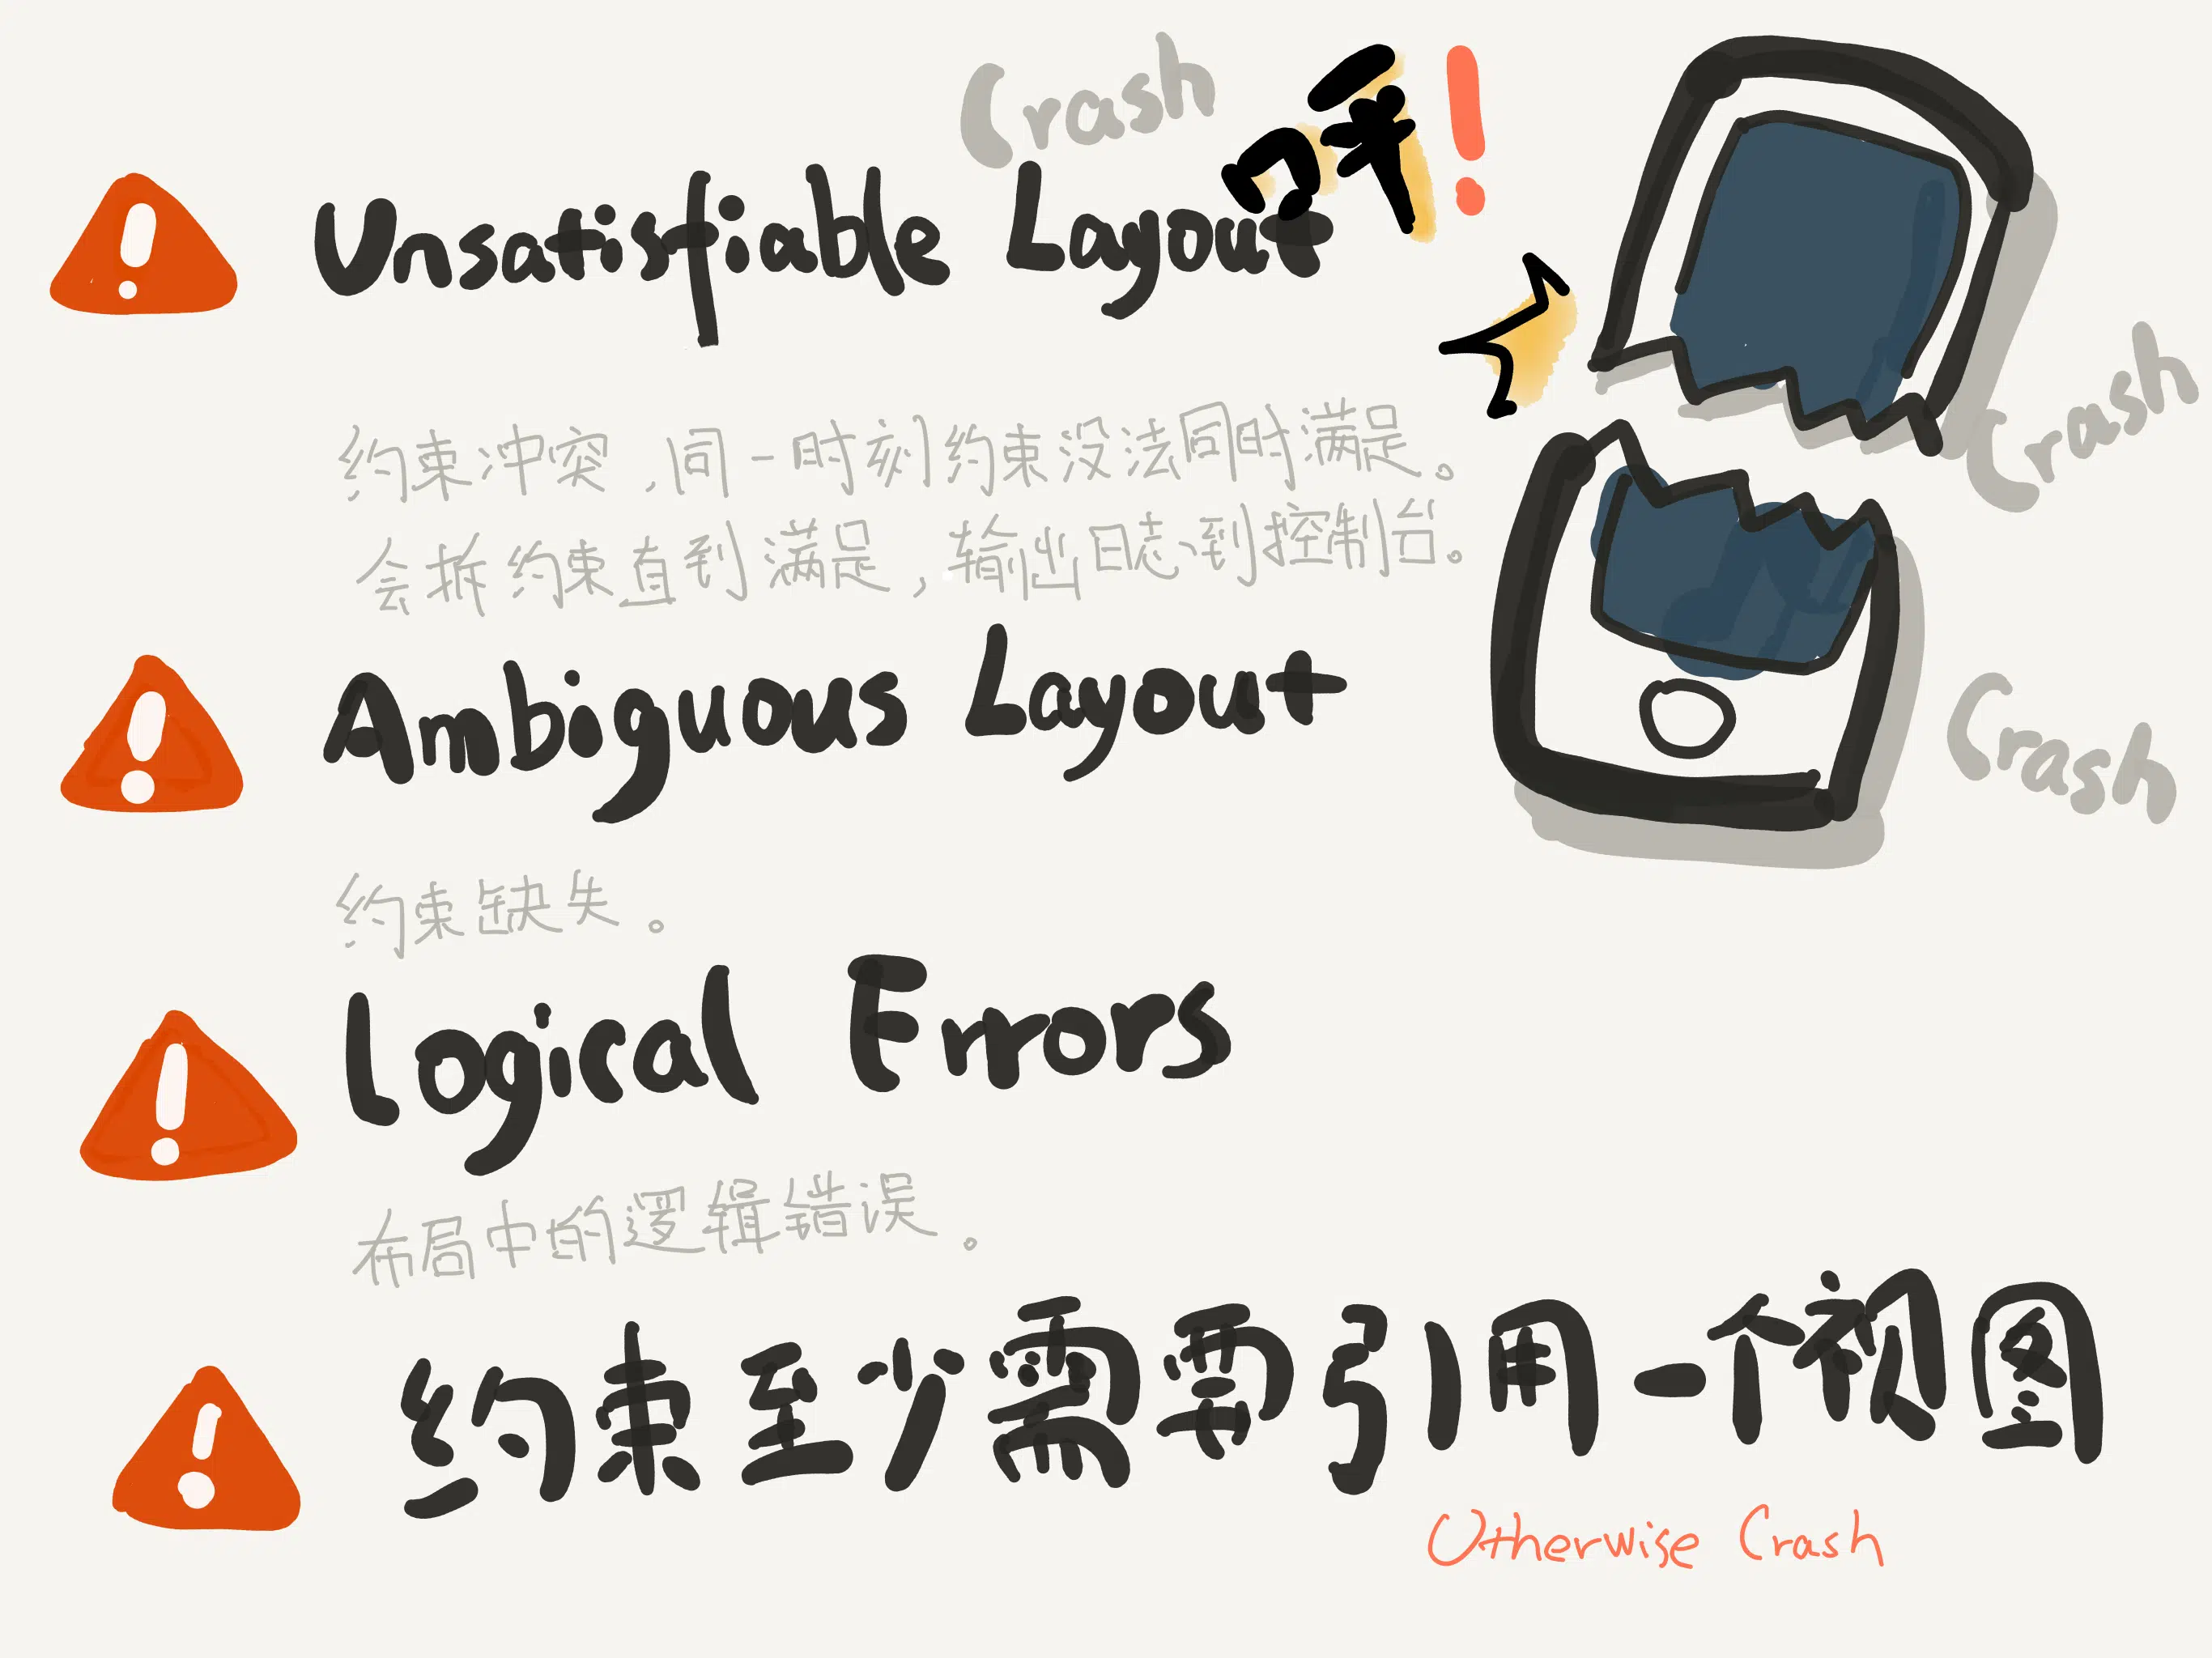 Crash
呀!
Unsatisfiable Layout
约束冲突,同一时刻约束没法同时满足。
会拆约束直到满足,输出日志到控制台。
Crash
Ambiguous Layout
Crash
约束缺失。
Logical Errors
布局中的逻辑错误。
约束至少需要引用一个视图
Otherwise Crash